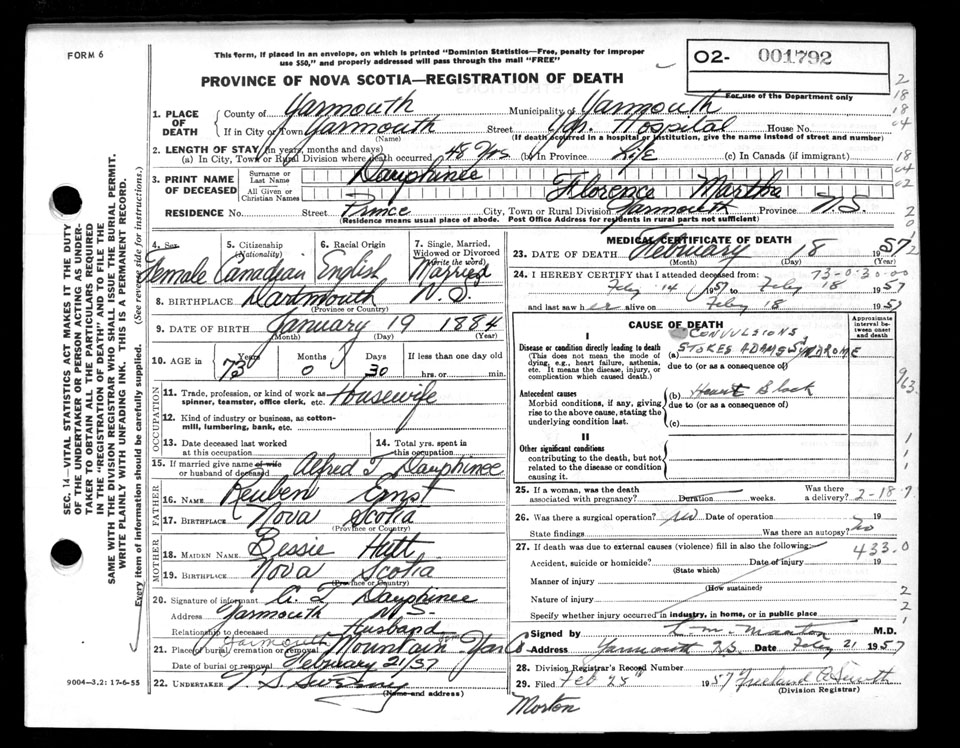 FORM 6
This form, if placed in an envelope, on which is printed "Dominion Statistics—Free, penalty for improper
use $50," and properly addressed will pass through the mail "FREE"
PROVINCE OF NOVA SCOTIA—REGISTRATION OF DEATH
02- 001792
For use of the Department only
SEC. 14—VITAL STATISTICS ACT MAKES IT THE DUTY
OF THE UNDERTAKER OR PERSON ACTING AS UNDER-
TAKER TO OBTAIN ALL THE PARTICULARS REQUIRED
IN THE "REGISTRATION OF DEATH" AND TO FILE THE
SAME WITH THE DIVISION REGISTRAR WHO SHALL ISSUE THE BURIAL PERMIT.
WRITE PLAINLY WITH UNFADING INK. THIS IS A PERMANENT RECORD.
Every item of information should be carefully supplied. (See reverse side for instructions.)
1. PLACE OF DEATH
County of Yarmouth Municipality of Yarmouth
If in City or Town Yarmouth Street Hospital House No.
(Name) (If death occurred in a hospital or institution, give the name instead of street and number)
2. LENGTH OF STAY (in years, months and days)
(a) In City, Town or Rural Division where death occurred 48 Yrs (b) In Province Life (c) In Canada (if immigrant)
3. PRINT NAME OF DECEASED
Surname or Last Name Dauphinee
All Given or Christian Names Florence Martha
RESIDENCE No. Street Prince City, Town or Rural Division Yarmouth Province N.S.
(Residence means usual place of abode. Post Office Address for residents in rural parts not sufficient)
4. Sex Female
5. Citizenship (Nationality) Canadian
6. Racial Origin English
7. Single, Married, Widowed or Divorced (Write the word) Married
8. BIRTHPLACE Dartmouth N.S.
(Province or Country)
9. DATE OF BIRTH January 19 1884
(Month) (Day) (Year)
10. AGE in 73 Years 0 Months 30 Days If less than one day old hrs. or min.
OCCUPATION
11. Trade, profession, or kind of work as spinner, teamster, office clerk, etc. Housewife
12. Kind of industry or business, as cotton-mill, lumbering, bank, etc.
13. Date deceased last worked at this occupation
14. Total yrs. spent in this occupation
15. If married give name of wife or husband of deceased Alfred T Dauphinee
FATHER
16. NAME Reuben Ernst
17. BIRTHPLACE Nova Scotia
(Province or Country)
MOTHER
18. MAIDEN NAME Bessie Hutt
19. BIRTHPLACE Nova Scotia
(Province or Country)
20. Signature of informant A. T. Dauphinee
Address Yarmouth N.S.
Relationship to deceased Husband
21. Place of burial, cremation or removal Yarmouth Mountain
Date of burial or removal February 21/57
22. UNDERTAKER Sweeny
(Name and address)
9004—3.2: 17-6-55
MEDICAL CERTIFICATE OF DEATH
23. DATE OF DEATH February 18 1957
(Month) (Day) (Year)
24. I HEREBY CERTIFY that I attended deceased from: 73-0-30-00
Feby 14 1957 to Feby 18 1957
and last saw her alive on Feby 18 1957
CAUSE OF DEATH
Approximate interval between onset and death
I
Disease or condition directly leading to death
(This does not mean the mode of dying, e.g., heart failure, asthenia, etc. It means the disease, injury, or complication which caused death.)
CONVULSIONS
(a) STOKES ADAMS SYNDROME
due to (or as a consequence of)
Antecedent causes
Morbid conditions, if any, giving rise to the above cause, stating the underlying condition last.
(b) Heart Block
due to (or as a consequence of)
(c)
II
Other significant conditions
contributing to the death, but not related to the disease or condition causing it.
25. If a woman, was the death associated with pregnancy? Duration weeks. Was there a delivery? 2-18-9
26. Was there a surgical operation? no Date of operation 19
State findings Was there an autopsy? no
27. If death was due to external causes (violence) fill in also the following: 433.0
Accident, suicide or homicide? Date of injury 19
(State which)
Manner of injury
(How sustained)
Nature of injury
Specify whether injury occurred in industry, in home, or in public place
Signed by L M Morton M.D.
Address Yarmouth N.S. Date Feby 21 1957
28. Division Registrar's Record Number
29. Filed Feb 25th 1957
(Division Registrar)
Morton